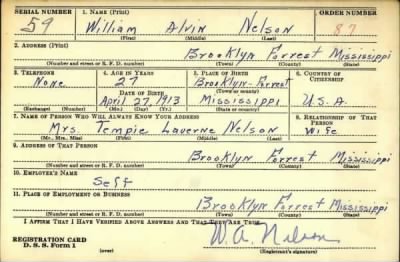 SERIAL NUMBER 1. NAME (Print) ORDER NUMBER
59 William Alvin Nelson 87
(First) (Middle) (Last)
2. ADDRESS (Print)
Brooklyn Forrest Mississippi
(Number and street or R. F. D. number) (Town) (County) (State)
3. TELEPHONE 4. AGE IN YEARS 5. PLACE OF BIRTH 6. COUNTRY OF CITIZENSHIP
None 27 Brooklyn-Forrest
DATE OF BIRTH (Town or county)
April 27, 1913 Mississippi U.S.A.
(Exchange) (Number) (Mo.) (Day) (Yr.) (State or country)
7. NAME OF PERSON WHO WILL ALWAYS KNOW YOUR ADDRESS 8. RELATIONSHIP OF THAT PERSON
Mrs. Tempie Laverne Nelson Wife
(Mr., Mrs., Miss) (First) (Middle) (Last)
9. ADDRESS OF THAT PERSON
Brooklyn Forrest Mississippi
(Number and street or R. F. D. number) (Town) (County) (State)
10. EMPLOYER'S NAME
Self
11. PLACE OF EMPLOYMENT OR BUSINESS
Brooklyn Forrest Mississippi
(Number and street or R. F. D. number) (Town) (County) (State)
I AFFIRM THAT I HAVE VERIFIED ABOVE ANSWERS AND THAT THEY ARE TRUE.
REGISTRATION CARD
D. S. S. Form 1 (over) W. A. Nelson
(Registrant's signature)